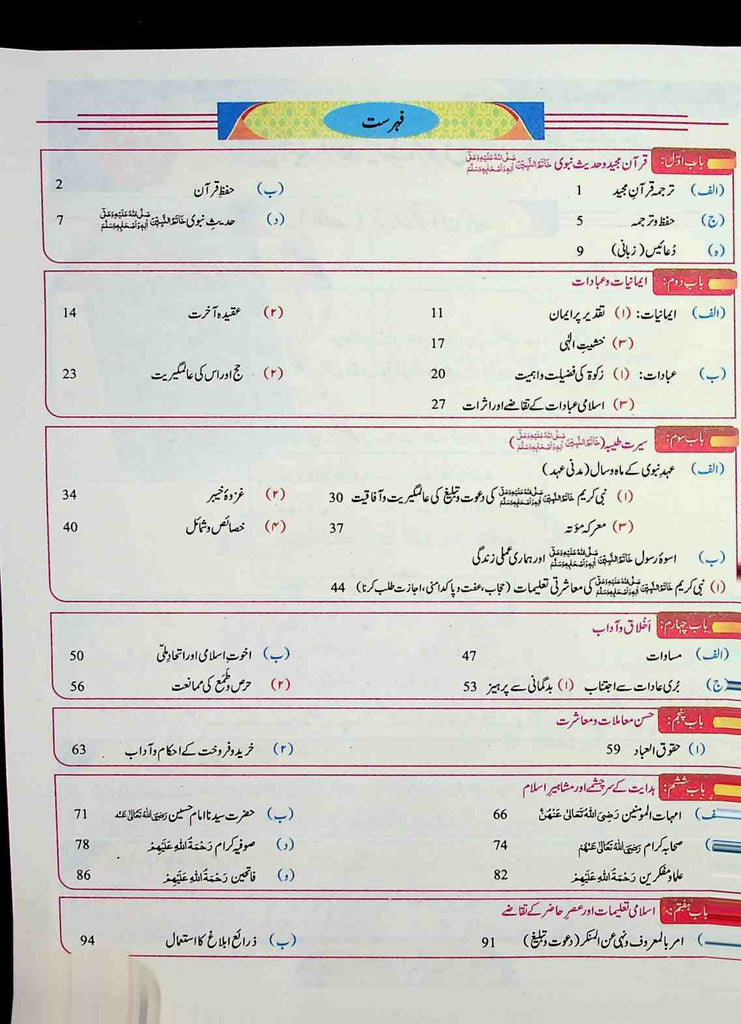 فہرست
باب اوّل: قرآن مجید و حدیث نبوی خَاتَمُ النَّبِیّٖنَ صَلَّی اللّٰہُ عَلَیْہِ وَعَلٰٓی اٰلِہٖ وَاَصْحَابِہٖ وَسَلَّمَ
(الف) ترجمہ قرآنِ مجید 1 (ب) حفظِ قرآن 2
(ج) حفظ و ترجمہ 5 (د) حدیثِ نبوی خَاتَمُ النَّبِیّٖنَ صَلَّی اللّٰہُ عَلَیْہِ وَعَلٰٓی اٰلِہٖ وَاَصْحَابِہٖ وَسَلَّمَ 7
(ہ) دُعائیں (زبانی) 9
باب دوم: ایمانیات و عبادات
(الف) ایمانیات: (۱) تقدیر پر ایمان 11 (۲) عقیدہ آخرت 14
(۳) خشیتِ الٰہی 17
(ب) عبادات: (۱) زکوٰۃ کی فضیلت و اہمیت 20 (۲) حج اور اس کی عالمگیریت 23
(۳) اسلامی عبادات کے تقاضے اور اثرات 27
باب سوم: سیرت طیبہ (خَاتَمُ النَّبِیّٖنَ صَلَّی اللّٰہُ عَلَیْہِ وَعَلٰٓی اٰلِہٖ وَاَصْحَابِہٖ وَسَلَّمَ)
(الف) عہدِ نبوی کے ماہ و سال (مدنی عہد)
(۱) نبی کریم خَاتَمُ النَّبِیّٖنَ صَلَّی اللّٰہُ عَلَیْہِ وَعَلٰٓی اٰلِہٖ وَاَصْحَابِہٖ وَسَلَّمَ کی دعوت و تبلیغ کی عالمگیریت و آفاقیت 30 (۲) غزوۂ خیبر 34
(۳) معرکہ موٴتہ 37 (۴) خصائص و شمائل 40
(ب) اسوۂ رسول خَاتَمُ النَّبِیّٖنَ صَلَّی اللّٰہُ عَلَیْہِ وَعَلٰٓی اٰلِہٖ وَاَصْحَابِہٖ وَسَلَّمَ اور ہماری عملی زندگی
(۱) نبی کریم خَاتَمُ النَّبِیّٖنَ صَلَّی اللّٰہُ عَلَیْہِ وَعَلٰٓی اٰلِہٖ وَاَصْحَابِہٖ وَسَلَّمَ کی معاشرتی تعلیمات (حجاب، عفت و پاکدامنی، اجازت طلب کرنا) 44
باب چہارم: اَخلاق و آداب
(الف) مساوات 47 (ب) اخوتِ اسلامی اور اتحادِ ملّی 50
(ج) بُری عادات سے اجتناب (۱) بدگمانی سے پرہیز 53 (۲) حرص و طمع کی ممانعت 56
باب پنجم: حسن معاملات و معاشرت
(۱) حقوق العباد 59 (۲) خرید و فروخت کے احکام و آداب 63
باب ششم: ہدایت کے سرچشمے اور مشاہیرِ اسلام
ف) امہات المومنین رَضِیَ اللّٰہُ تَعَالٰی عَنْہُنَّ 66 (ب) حضرت سیدنا امام حسین رَضِیَ اللّٰہُ تَعَالٰی عَنْہُ 71
) صحابہ کرام رَضِیَ اللّٰہُ تَعَالٰی عَنْہُمْ 74 (د) صوفیہ کرام رَحْمَۃُ اللّٰہِ عَلَیْہِمْ 78
علما و مفکرین رَحْمَۃُ اللّٰہِ عَلَیْہِمْ 82 (و) فاتحین رَحْمَۃُ اللّٰہِ عَلَیْہِمْ 86
باب ہفتم: اسلامی تعلیمات اور عصرِ حاضر کے تقاضے
) امر بالمعروف و نہی عن المنکر (دعوت و تبلیغ) 91 (ب) ذرائع ابلاغ کا استعمال 94